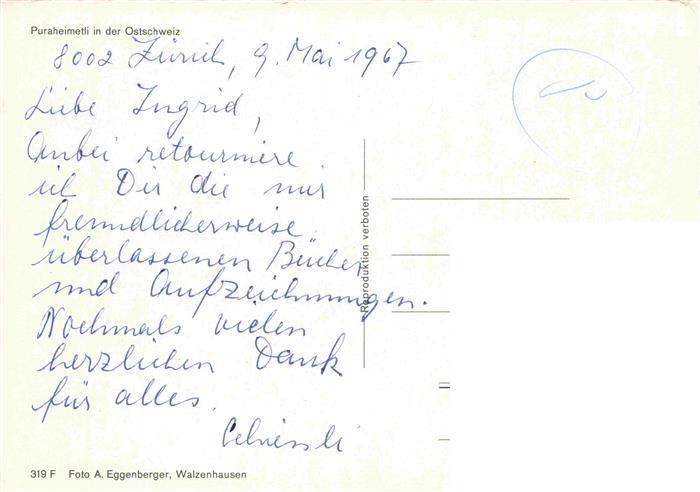 Puraheimetli in der Ostschweiz
8002 Zürich, 9. Mai 1967
Liebe Ingrid,
Anbei retourniere
ich Dir die mir
freundlicherweise
überlassenen Bücher
und Aufzeichnungen.
Nochmals vielen
herzlichen Dank
für alles.
Reproduktion verboten
319 F Foto A. Eggenberger, Walzenhausen